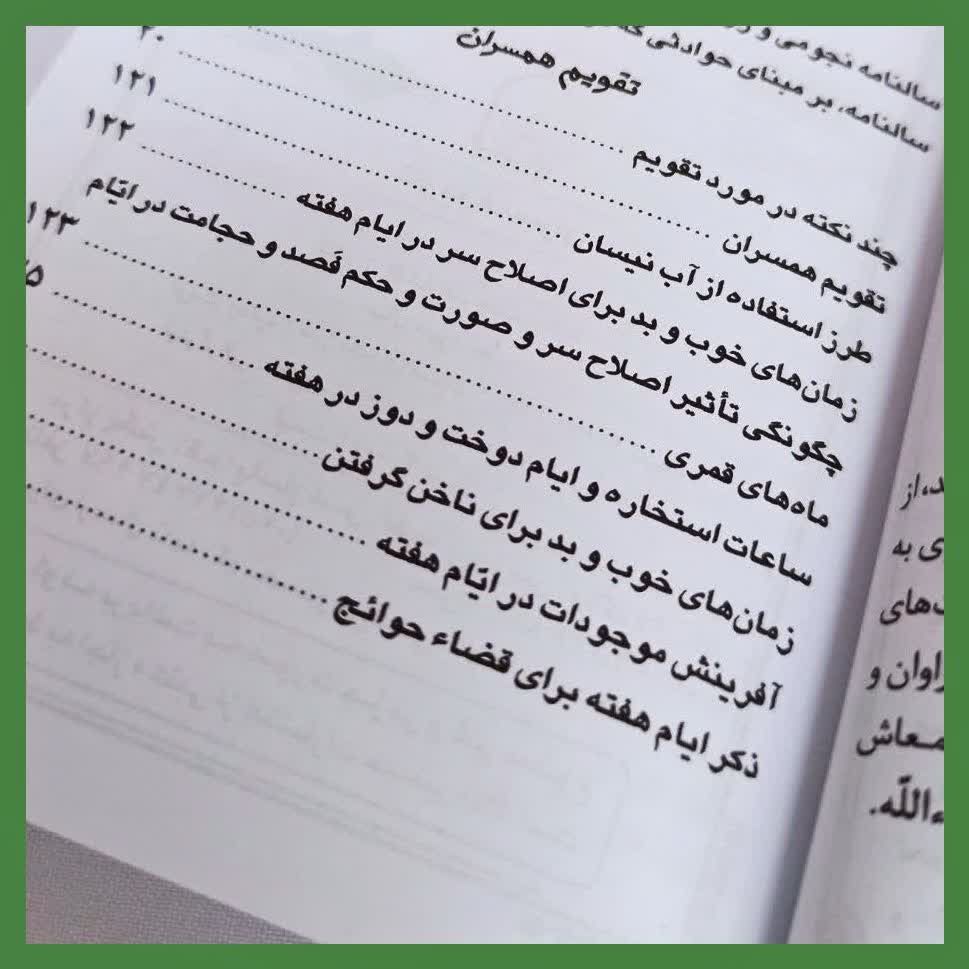 سالنامه نجومی و
سالنامه، بر مبنای حوادثی که
تقویم همسران
چند نکته در مورد تقویم ........ ۲۰
تقویم همسران ........ ۱۲۱
طرز استفاده از آب نیسان ........ ۱۲۲
زمان‌های خوب و بد برای اصلاح سر در ایام هفته ........
چگونگی تأثیر اصلاح سر و صورت و حکم فصد و حجامت در ایّام
ماه‌های قمری ........ ۱۲۳
ساعات استخاره و ایام دوخت و دوز در هفته ........ ۵
زمان‌های خوب و بد برای ناخن گرفتن ........
آفرینش موجودات در ایّام هفته ........
ذکر ایام هفته برای قضاء حوائج ........
د، از
ی به
‌های
راوان و
معاش
ءاللّه.